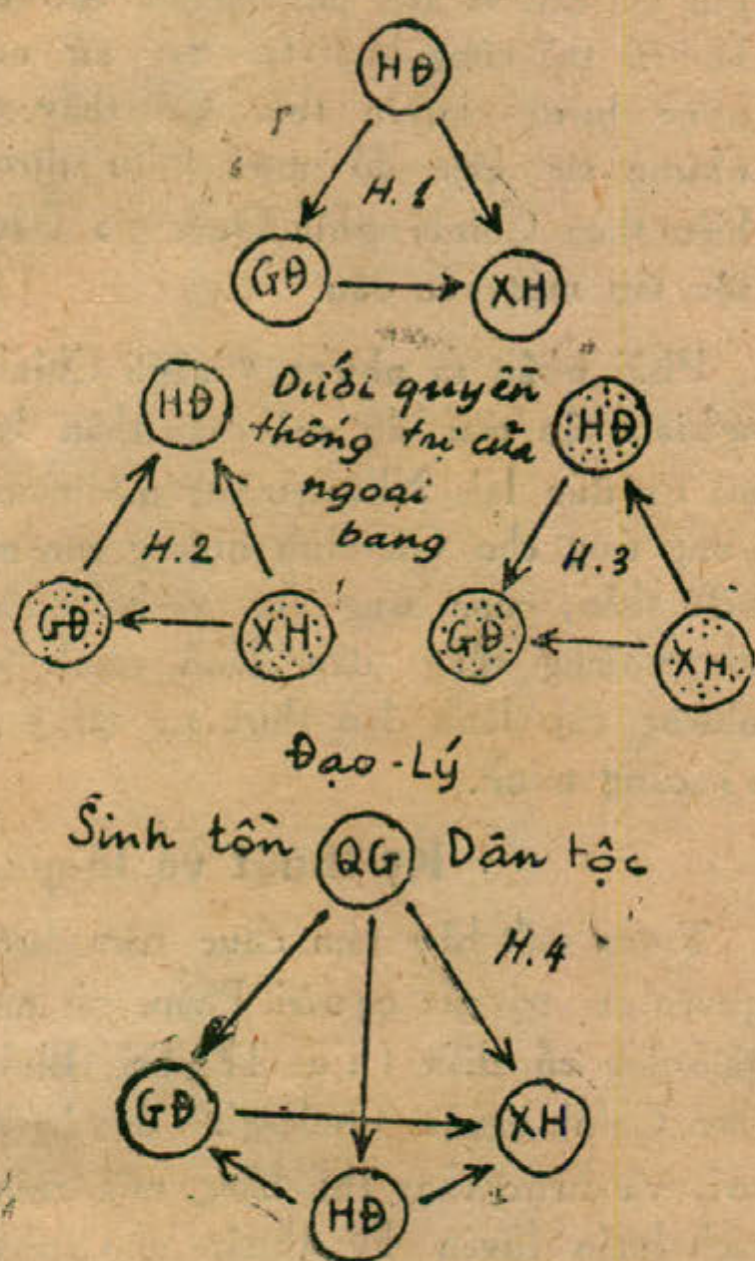 HĐ
H.1
GĐ
XH
HĐ
Dưới quyền
thống trị của
ngoại
bang
HĐ
H.2
H.3
GĐ
XH
GĐ
XH.
Đạo-Lý
Sinh tồn QG Dân tộc
H.4
GĐ
XH
HĐ